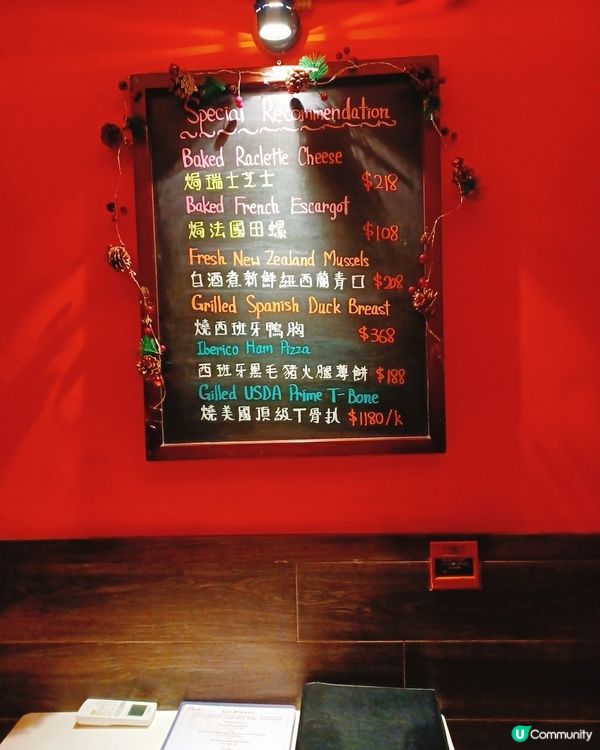 Special Recommendation
Baked Raclette Cheese
焗瑞士芝士 $218
Baked French Escargot
焗法國田螺 $108
Fresh New Zealand Mussels
白酒煮新鮮紐西蘭青口 $208
Grilled Spanish Duck Breast
燒西班牙鴨胸 $368
Iberico Ham Pizza
西班牙黑毛豬火腿薄餅 $188
Gilled USDA Prime T-Bone
燒美國頂級T骨扒 $1180/k
U Community